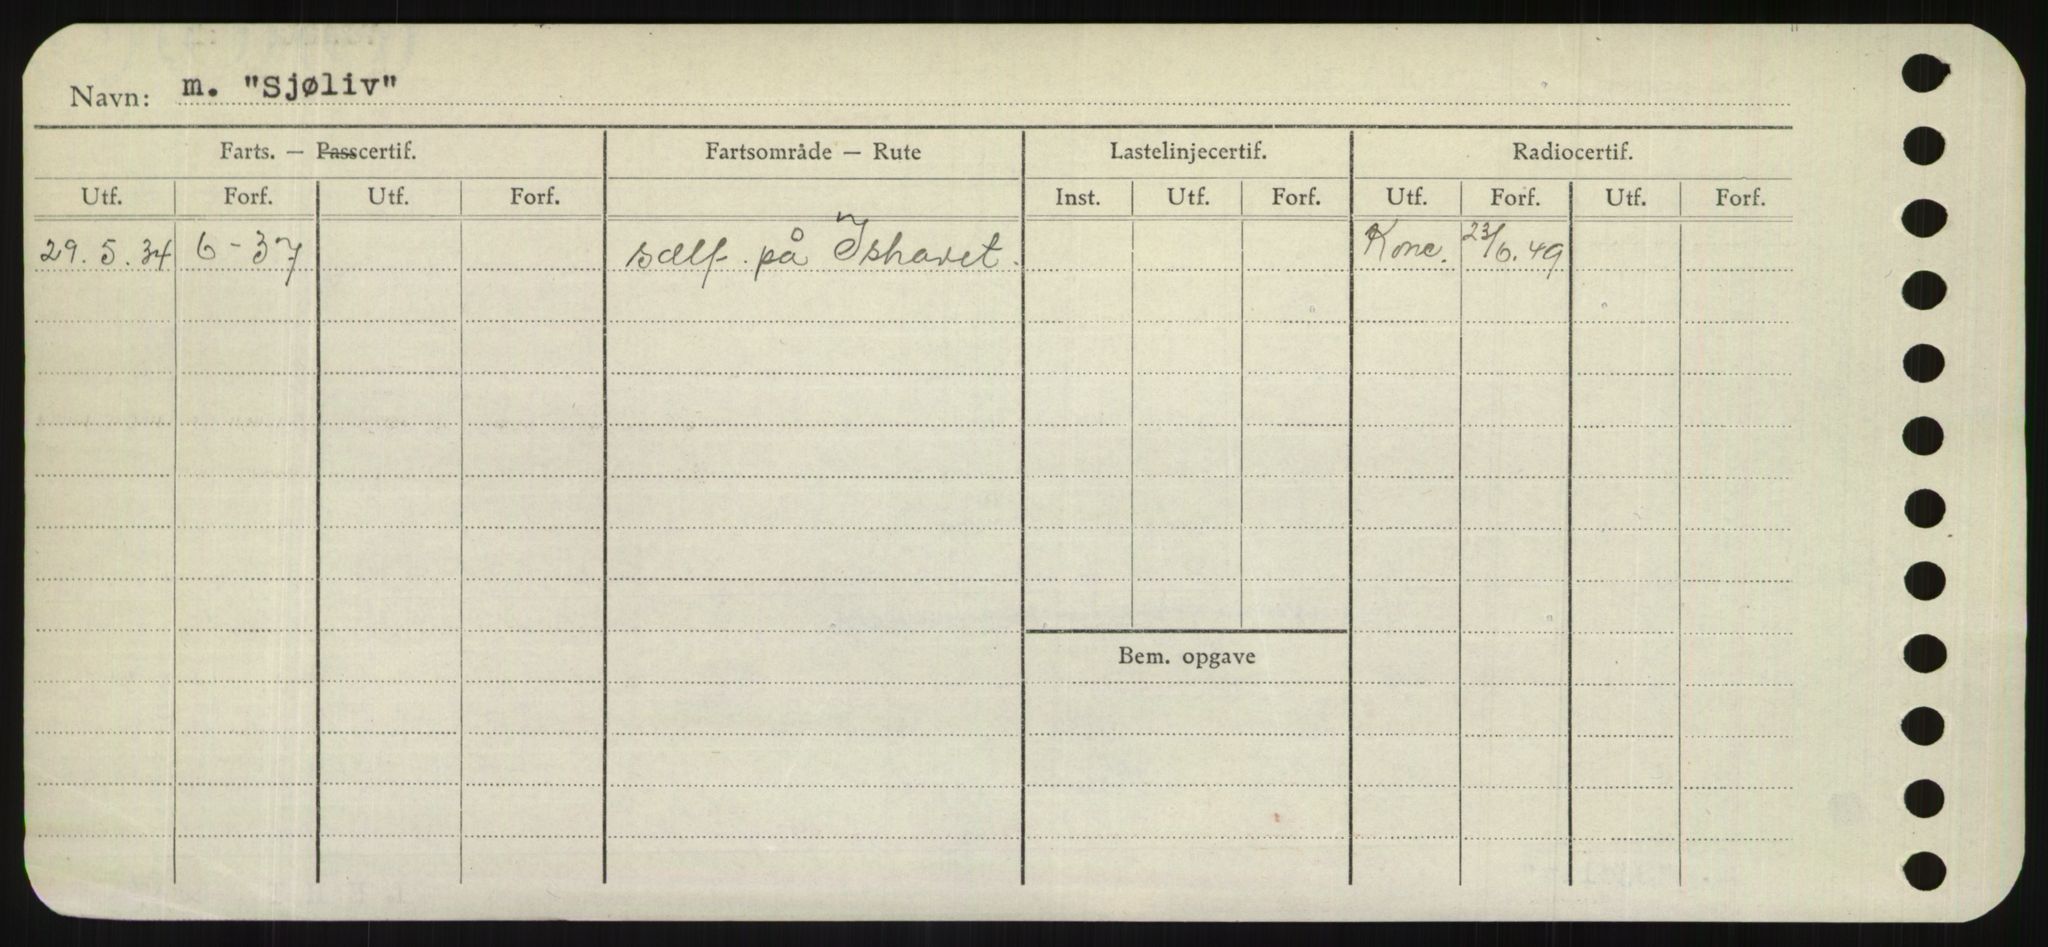 Navn: m. "Sjøliv"
Farts. — Passcertif. Fartsområde — Rute Lastelinjecertif. Radiocertif.
Utf. Forf. Utf. Forf. Inst. Utf. Forf. Utf. Forf. Utf. Forf.
29.5.34 6-37 sælf. på Ishavet. Konc. 23/6.49
Bem. opgave